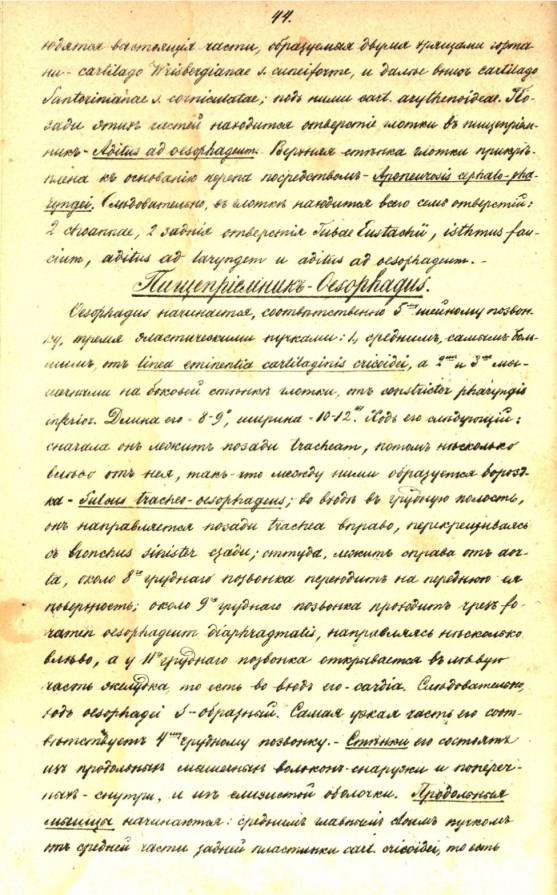 44.
ходятся выстоящія части, образуемыя двумя хрящами горта-
ни - cartilago Wrisbergianae s. cuneiforme, и далѣе внизъ cartilago
Santorinianae s. corniculatae; подъ ними cart. arythenoideae. По-
зади этихъ частей находится отверстіе глотки въ пищепріем-
никъ - Aditus ad oesophageum. Верхняя стѣнка глотки прикрѣ-
плена къ основанію черепа посредствомъ - Aponeurosis cephalo-pha-
ryngei. Слѣдовательно, въ глоткѣ находится всего семь отверстій:
2 choannae, 2 заднія отверстія Tubae Eustachii, isthmus fau-
cium, aditus ad laryngem и aditus ad oesophageum. -
Пищепріемникъ - Oesophagus.
Oesophagus начинается, соотвѣтственно 5му шейному позвон-
ку, тремя эластическими пучками: 1, среднимъ, самымъ боль-
шимъ, отъ linea eminentia cartilaginis cricoidei, а 2мъ и 3мъ мы-
шечными на боковой стѣнкѣ глотки, отъ constrictor pharyngis
inferior. Длина его - 8-9", ширина - 10-12'". Ходъ его слѣдующій:
сначала онъ лежитъ позади tracheam, потомъ нѣсколько
влѣво отъ нея, такъ-что между ними образуется борозд-
ка - Sulcus tracheo-oesophageus; во входѣ въ грудную полость,
онъ направляется позади trachea вправо, перекрещиваясь
съ bronchus sinister сзади; оттуда, лежитъ справа отъ aor-
ta, около 8го груднаго позвонка переходитъ на переднюю ея
поверхность; около 9го груднаго позвонка проходитъ чрезъ fo-
ramen oesophageum diaphragmatis, направляясь нѣсколько
влѣво, а у 11го груднаго позвонка открывается въ лѣвую
часть желудка, то есть во входъ его - cardia. Слѣдовательно,
ходъ oesophagei S-образный. Самая узкая часть его соот-
вѣтствуетъ 4му грудному позвонку. - Стѣнки его состоятъ
изъ продольныхъ мышечныхъ волоконъ - снаружи и попереч-
ныхъ - снутри, и изъ слизистой оболочки. Продольныя
мышцы начинаются: среднимъ главнымъ своимъ пучкомъ
отъ средней части задней пластинки cart. cricoidei, то есть